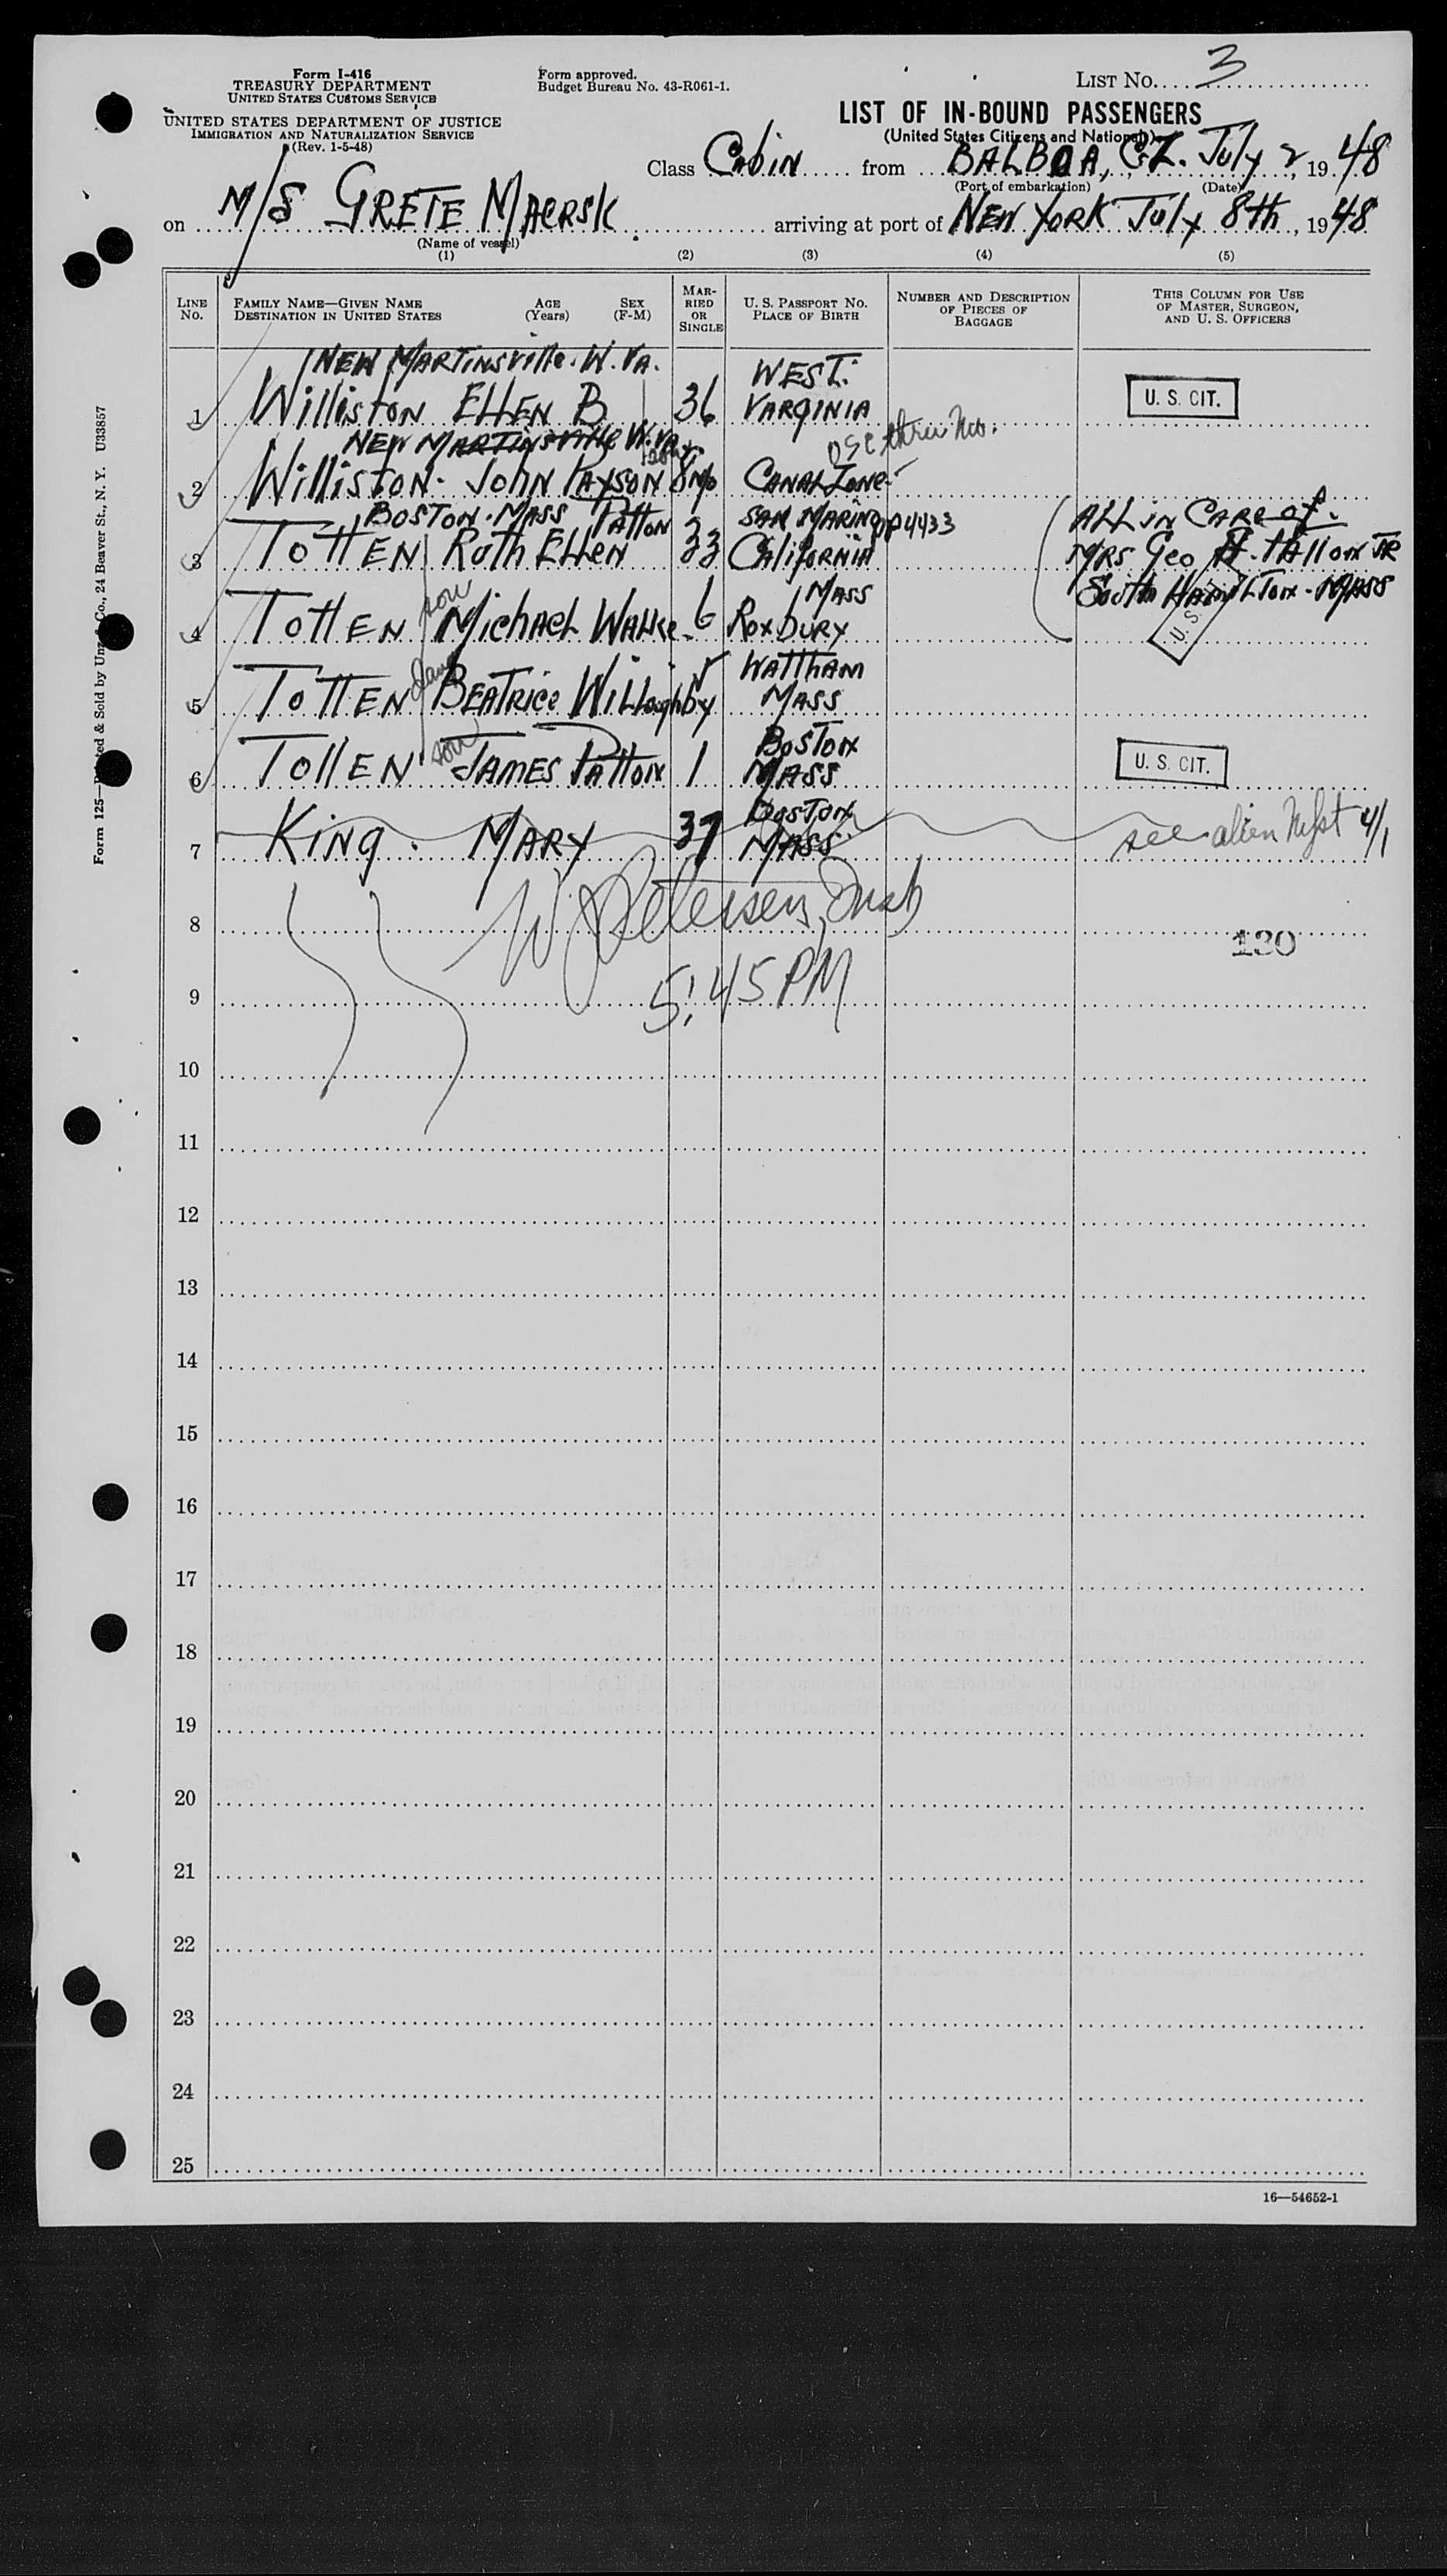 Form I-416
TREASURY DEPARTMENT
UNITED STATES CUSTOMS SERVICE
UNITED STATES DEPARTMENT OF JUSTICE
IMMIGRATION AND NATURALIZATION SERVICE
(Rev. 1-5-48)
Form approved.
Budget Bureau No. 43-R061-1.
LIST No. 3
LIST OF IN-BOUND PASSENGERS
(United States Citizens and Nationals)
Class Cabin from BALBOA, C.Z. July 2, 1948
(Port of embarkation) (Date)
on M/S GRETE MAERSK arriving at port of NEW YORK July 8th, 1948
(Name of vessel)
(1) (2) (3) (4) (5)
LINE No.
FAMILY NAME—GIVEN NAME AGE (Years) SEX (F-M)
DESTINATION IN UNITED STATES
MARRIED OR SINGLE
U. S. PASSPORT No.
PLACE OF BIRTH
NUMBER AND DESCRIPTION OF PIECES OF BAGGAGE
THIS COLUMN FOR USE OF MASTER, SURGEON, AND U. S. OFFICERS
NEW MARTINSVILLE. W. VA. WEST.
1 Williston ELLEN B 36 VARGINIA U. S. CIT.
NEW MARTINSVILLE W. VA
2 Williston. John PAYSON 8 Mo CANAL ZONE
BOSTON. MASS PATTON SAN MARINO 4433 ALL IN CARE of.
3 TOTTEN Ruth ELLEN 33 CALIFORNIA MRS Geo JR
son MASS South HAMILTON. MASS
4 TOTTEN Michael 6 ROXBURY U. S.
WALTHAM
5 TOTTEN BEATRICE Willoughby MASS
son BOSTON
6 TOTTEN JAMES PATTON 1 MASS U. S. CIT.
BOSTON
7 KING. MARY 37 MASS see alien 4/1
8
130
9 5:45 PM
10
11
12
13
14
15
16
17
18
19
20
21
22
23
24
25
16—54652-1